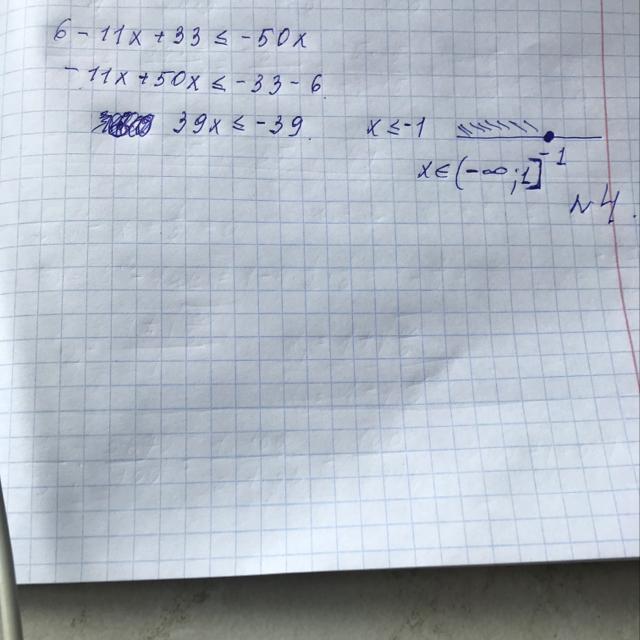 6 - 11x + 33 ≤ -50x
-11x + 50x ≤ -33 - 6
39x ≤ -39. x ≤ -1
-1
x ∈ (-∞; 1]
N4.